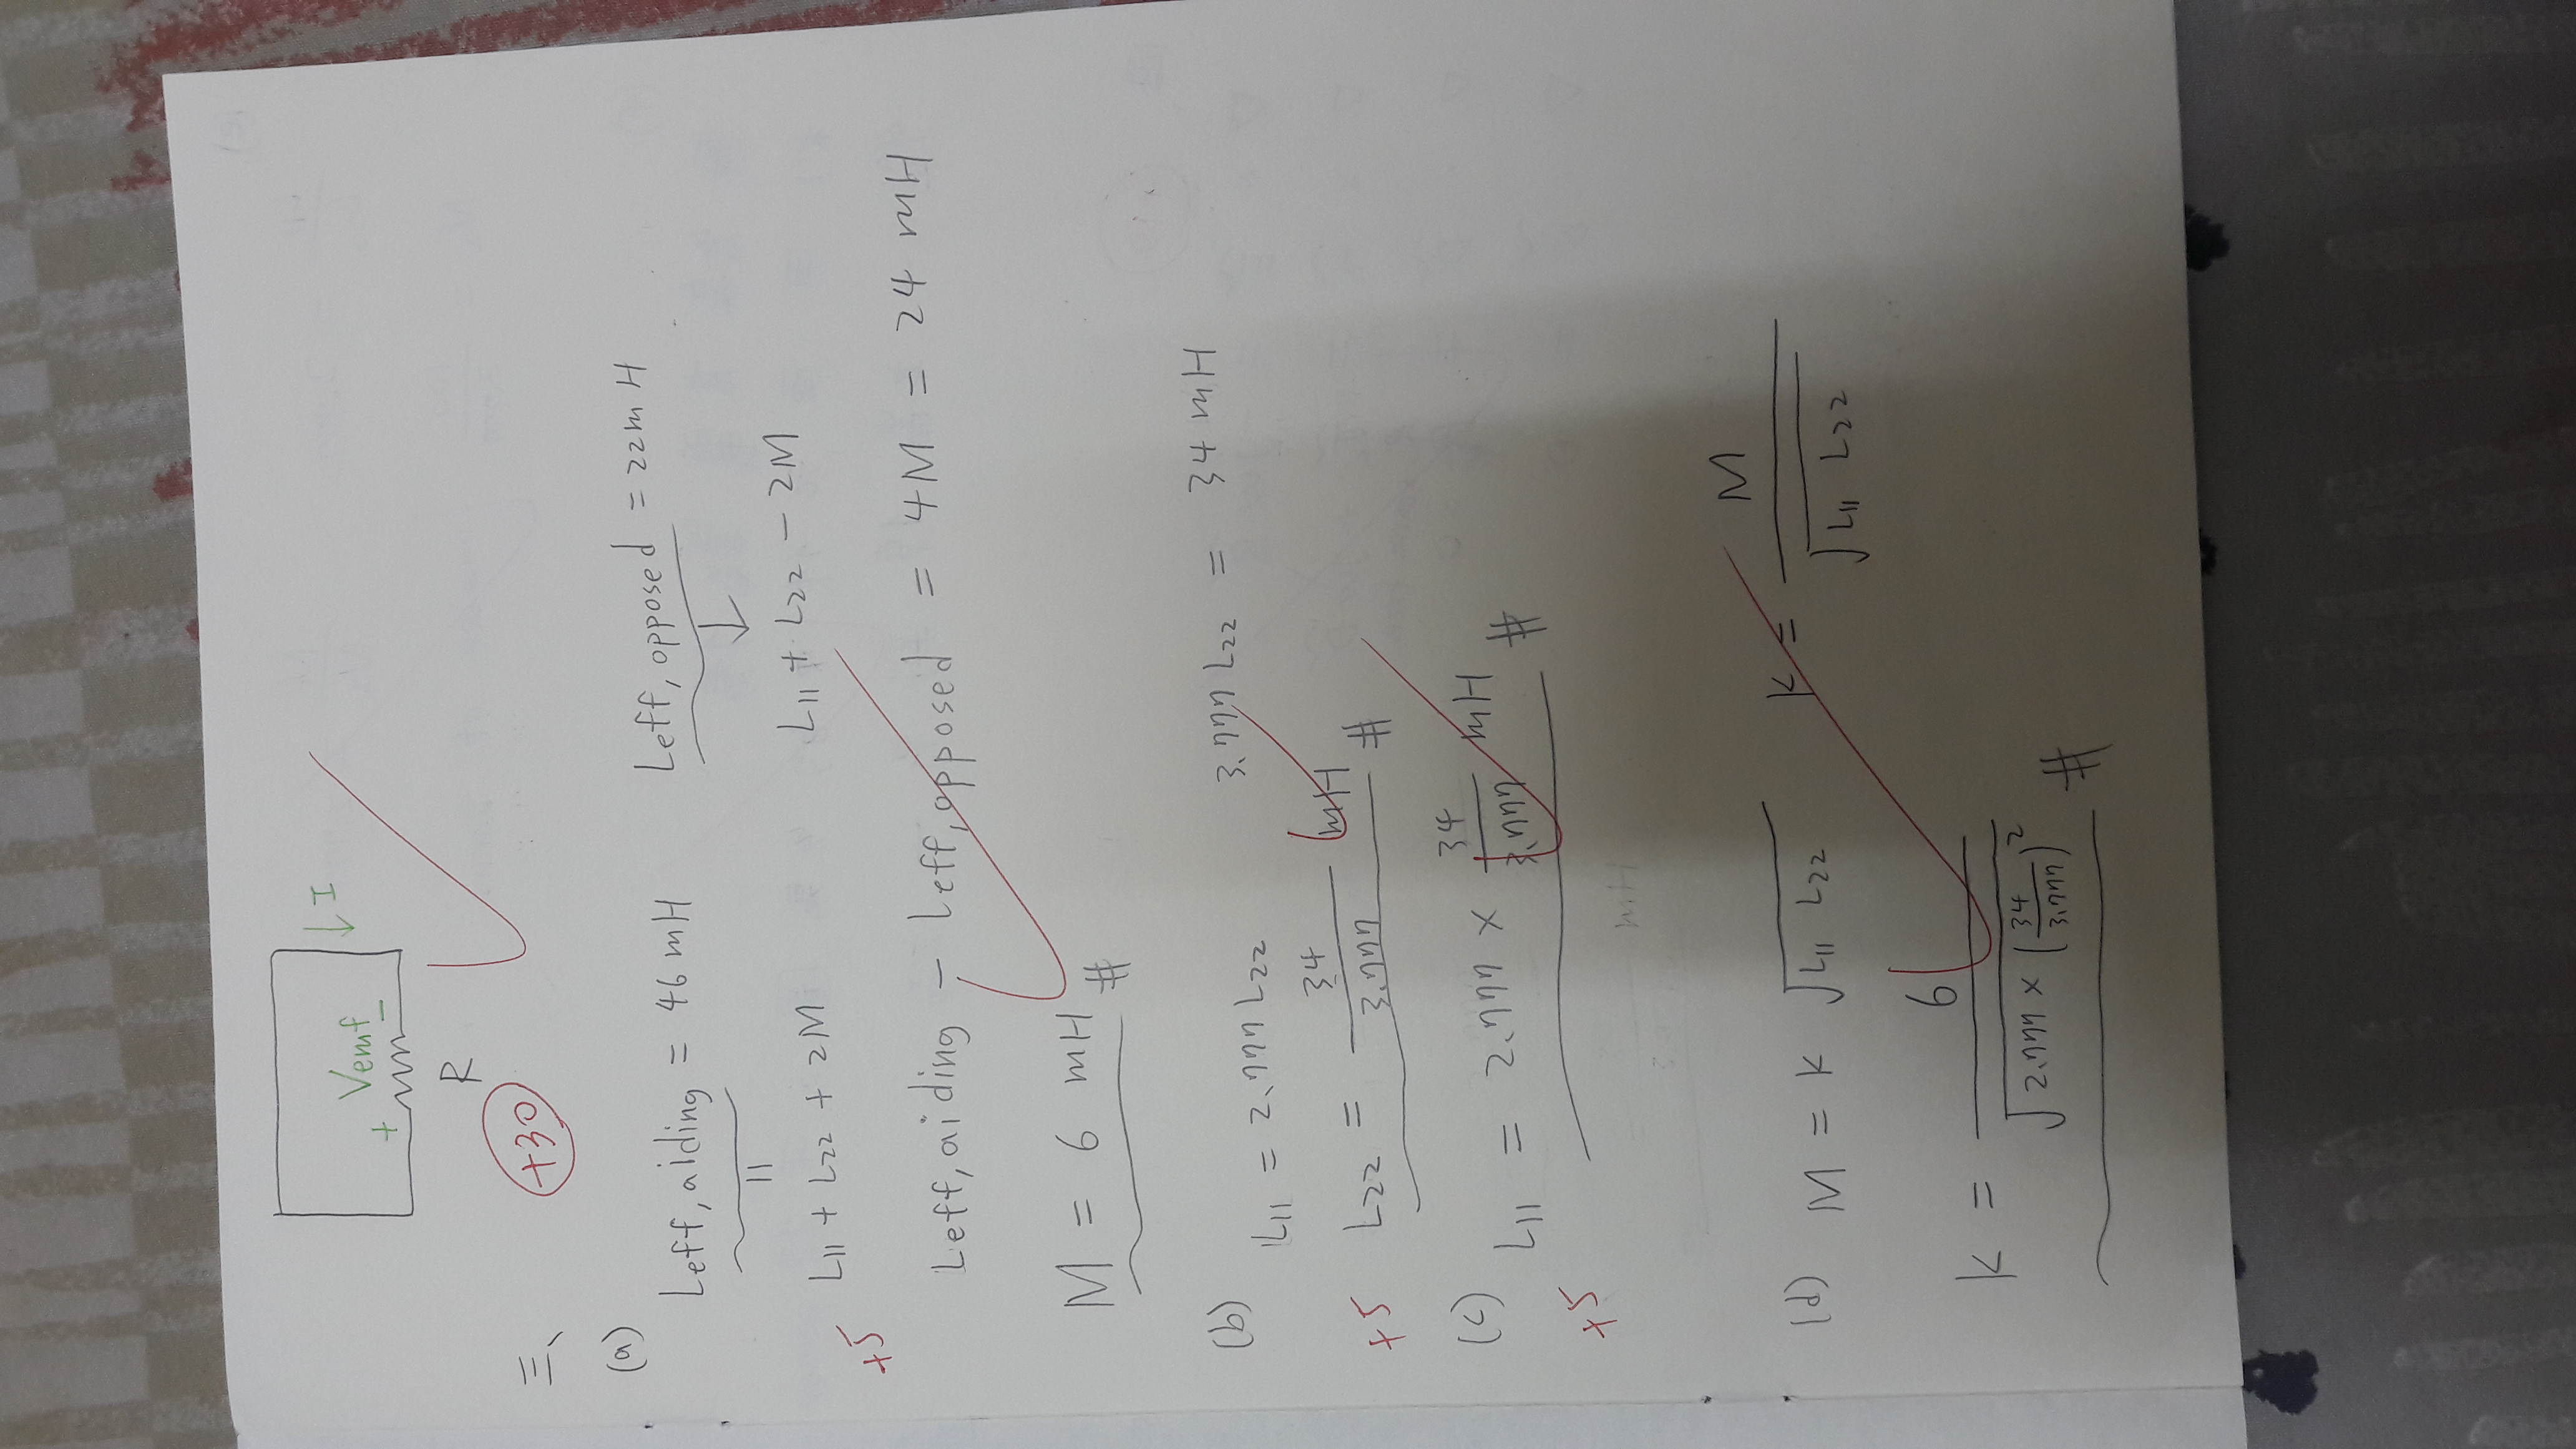 ↓ I
+ Vemf −
R
三、 +30
(a)
Leff, aiding = 46 mH Leff, opposed = 22 mH
|| ↓
L11 + L22 + 2M L11 + L22 − 2M
+5
Leff, aiding − Leff, opposed = 4M = 24 mH
M = 6 mH #
(b) L11 = 2.777 L22 3.777 L22 = 34 mH
+5 L22 = 34/3.777 mH #
(c) L11 = 2.777 × 34/3.777 mH #
+5
(d) M = k √(L11 L22) k = M/√(L11 L22)
k = 6/√(2.777 × (34/3.777)²) #